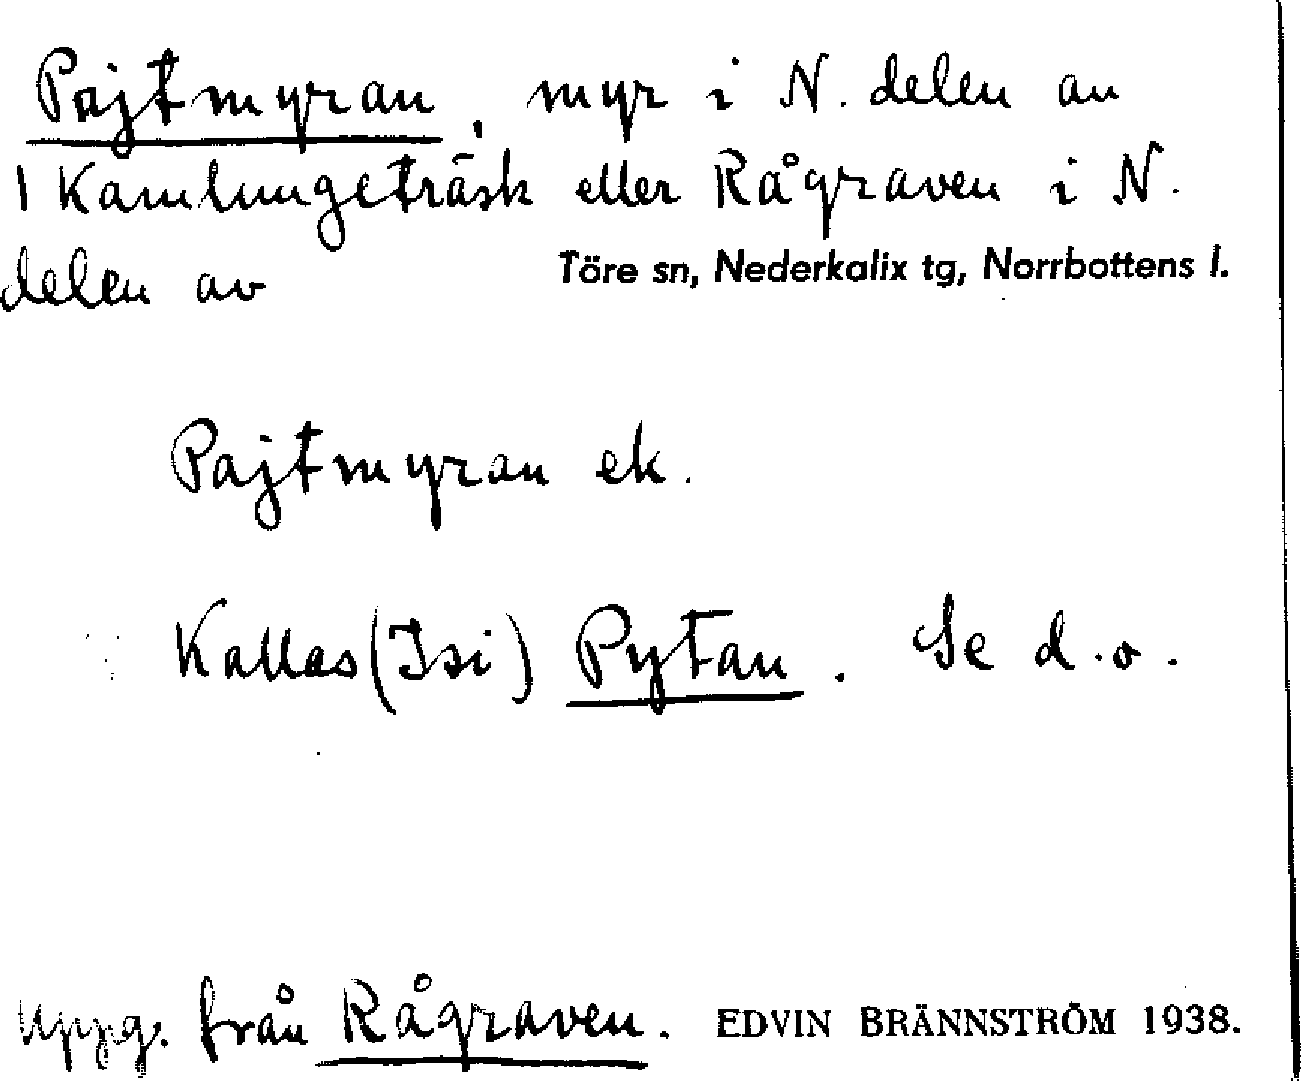 Pajtmyran, myr i N. delen av
1 Kamlungeträsk eller Rågraven i N.
delen av Töre sn, Nederkalix tg, Norrbottens l.
Pajtmyran ek.
Kallas (Isi) Pytan. Se d.o.
Uppg. från Rågraven. EDVIN BRÄNNSTRÖM 1938.